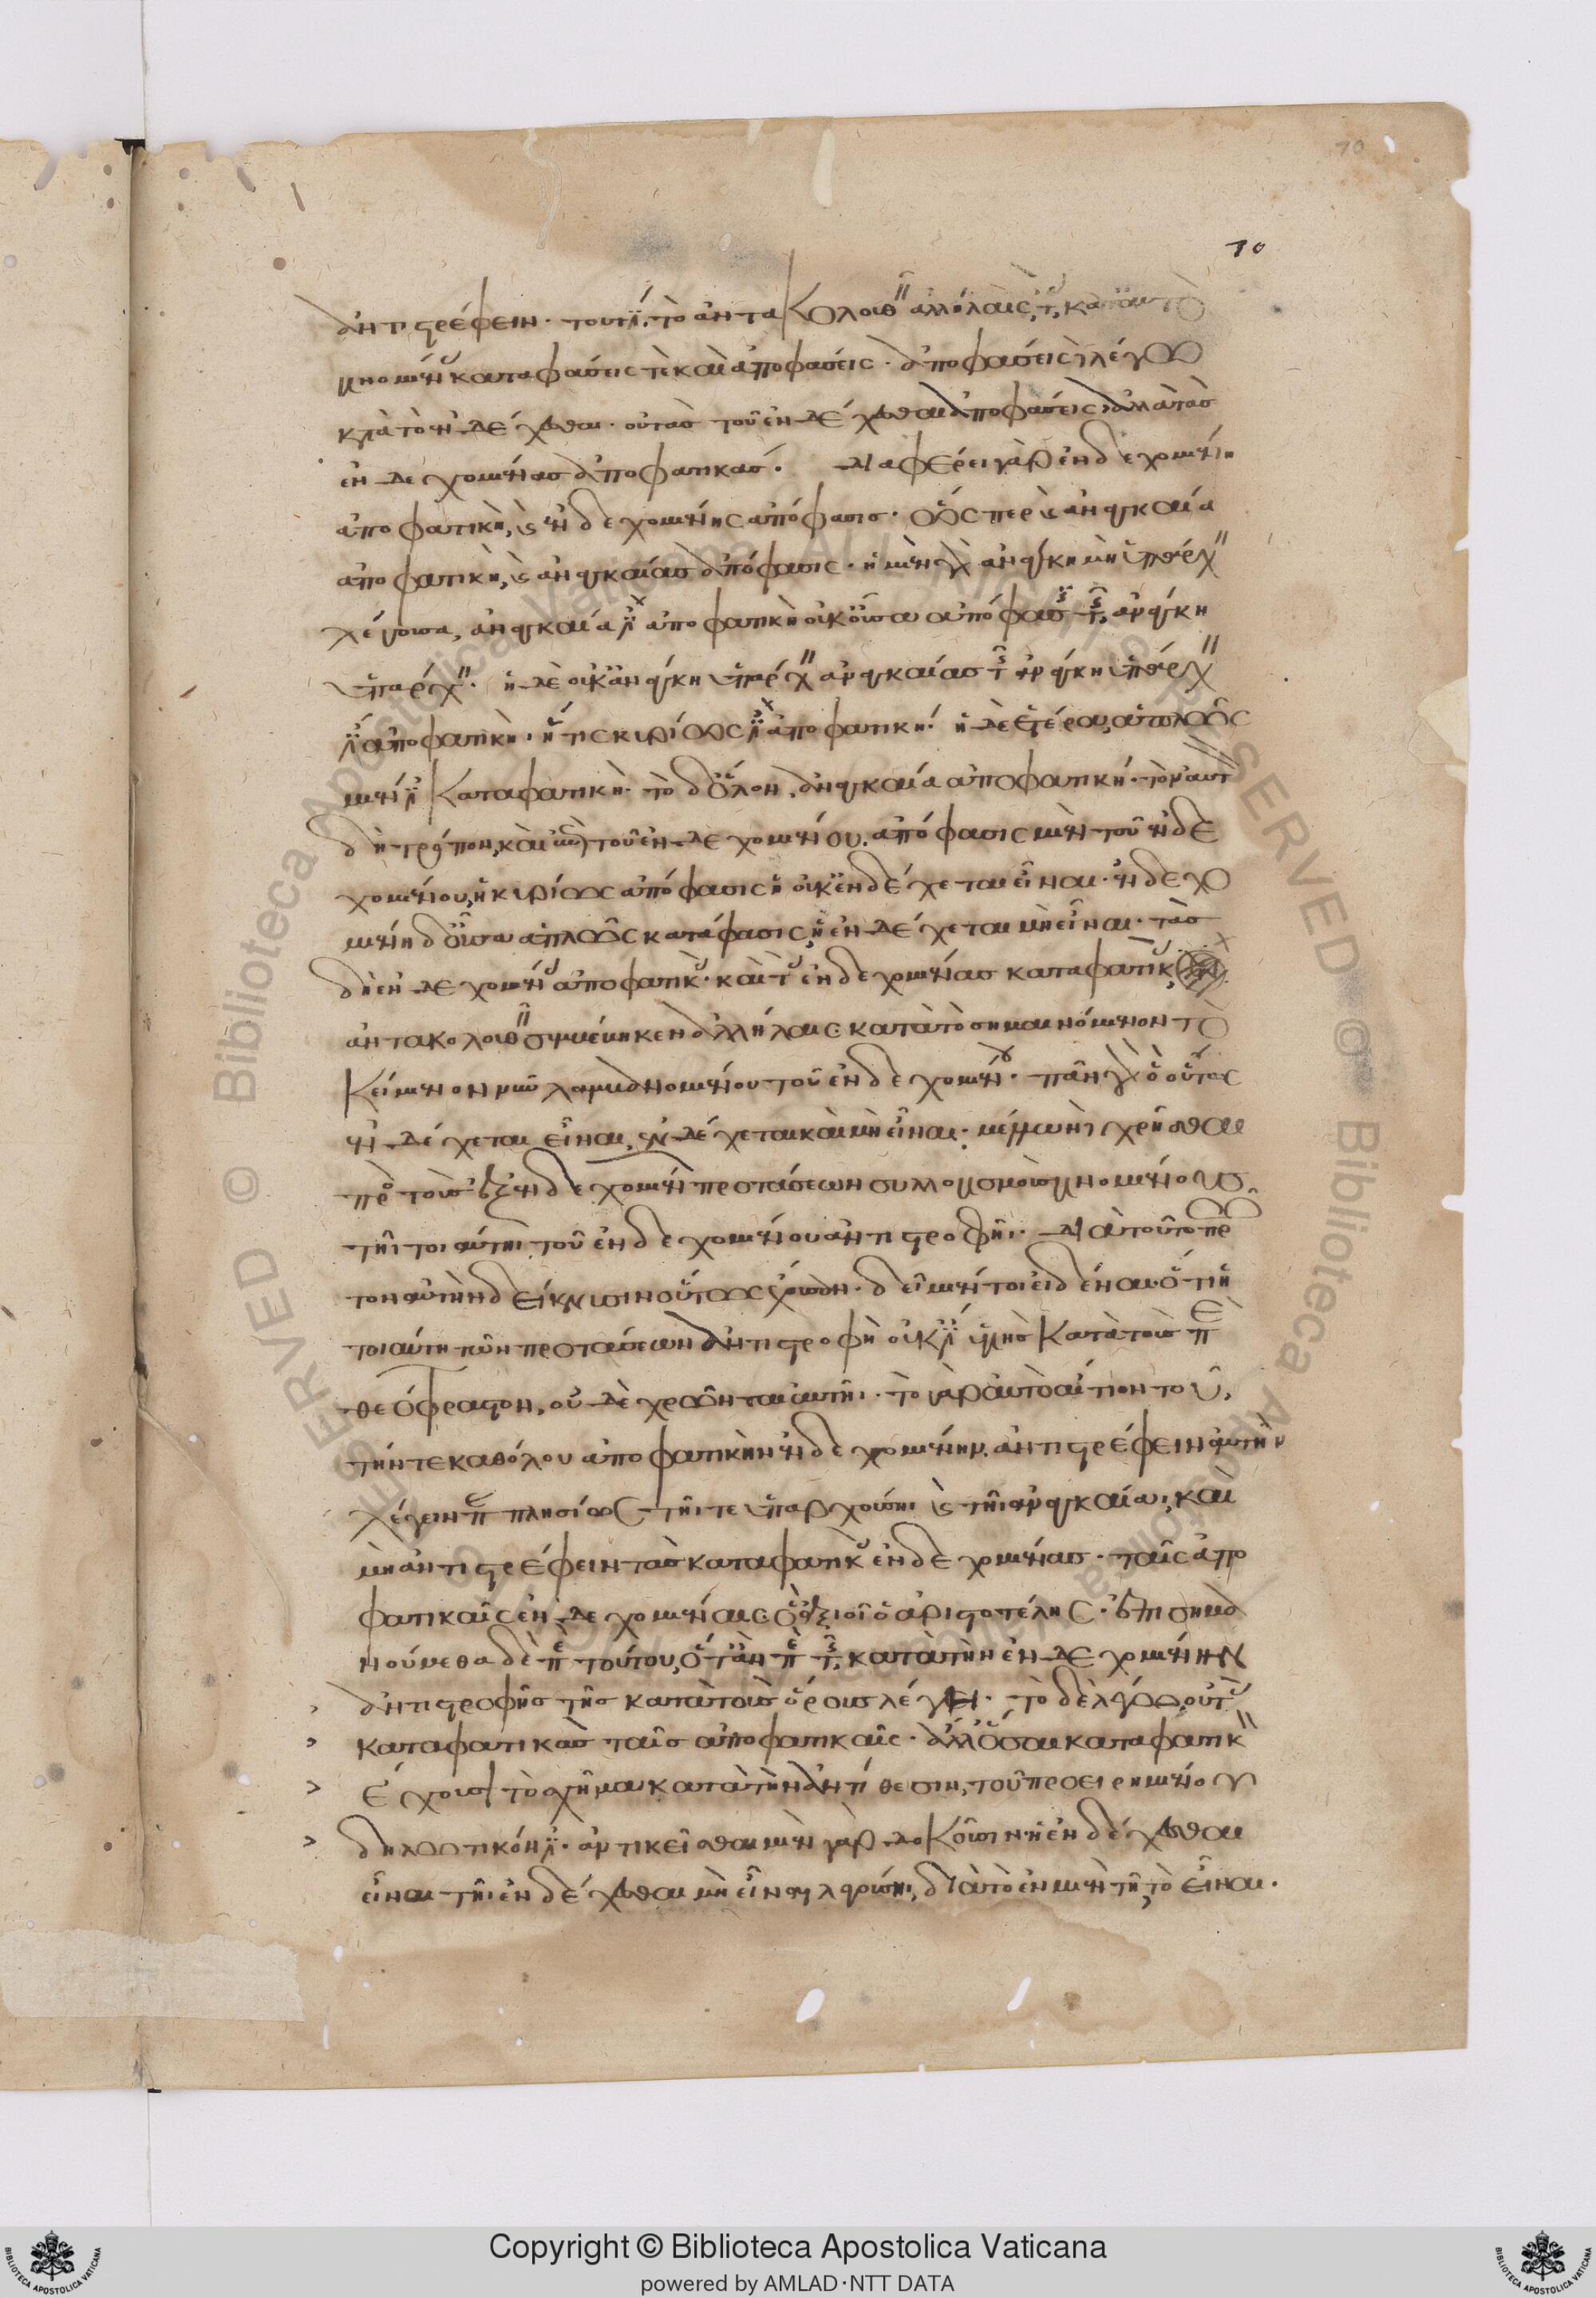 70
70
ἀντιστρέφειν· τουτέστι τὸ ἀντακολουθεῖν ἀλλήλαις, τὰς κατὰ ταυτὸ
γινομένας καταφάσεις τὲ καὶ ἀποφάσεις· ἀποφάσεις δὲ λέγω
κατὰ τὸ ἐνδέχεσθαι· οὐ τὰς τοῦ ἐνδέχεσθαι ἀποφάσεις, ἀλλὰ τὰς
ἐνδεχομένας ἀποφατικάς· διαφέρει γὰρ ἐνδεχομένη
ἀποφατικὴ, καὶ ἐνδεχομένης ἀπόφασις· ὥσπερ καὶ ἀναγκαία
ἀποφατικὴ, καὶ ἀναγκαίας ἀπόφασις· ἡ μὲν γὰρ ἀνάγκη μὴ ὑπάρχειν
λέγουσα, ἀναγκαία ἐστὶν ἀποφατικὴ οὐκ οὖσα ἀπόφασις τῆς ἀνάγκη
ὑπάρχειν· ἡ δὲ οὐκ ἀνάγκη ὑπάρχειν ἀναγκαίας τῆς ἀνάγκη ὑπάρχειν
ἐστὶν ἀποφατικὴ· ἥτις κυρίως ἐστὶν ἀποφατική· ἡ δὲ ἑτέρα, ἁπλῶς
μέν ἐστι καταφατικὴ· τὸ δ' ὅλον, ἀναγκαία ἀποφατική· τὸν αὐτὸν
δὴ τρόπον, καὶ ἐπὶ τοῦ ἐνδεχομένου. ἀπόφασις μὲν τοῦ ἐνδε
χομένου, ἡ κυρίως ἀπόφασις ἡ οὐκ ἐνδέχεται εἶναι· ἐνδεχο
μένη δ' οὖσα ἁπλῶς κατάφασις, ἡ ἐνδέχεται μὴ εἶναι· τὰς
δὴ ἐνδεχομένας ἀποφατικάς· καὶ τὰς ἐνδεχομένας καταφατικάς,
ἀντακολουθεῖν συμβέβηκεν ἀλλήλαις κατὰ τὸ σημαινόμενον τὸ
κείμενον νῦν λαμβανομένου τοῦ ἐνδεχομένου· πᾶν γὰρ ὃ οὕτως
ἐνδέχεται εἶναι, ἐνδέχεται καὶ μὴ εἶναι· μέλλων δὲ χρῆσθαι
πρὸς τοὺς ἐξ ἐνδεχομένων προτάσεων συλλογισμοὺς γινομένους
τῆι τοιαύτηι τοῦ ἐνδεχομένου ἀντιστροφῆι· διὰ τοῦτο πρῶ
τον αὐτὴν δείκνυσιν οὕτως ἔχουσαν· δεῖ μέντοι εἰδέναι ὅτι ἡ
τοιαύτη τῶν προτάσεων ἀντιστροφὴ οὐκ ἔστιν ὑγιὴς κατὰ τοὺς περὶ
θεόφραστον, οὐδὲ χρῶνται αὐτῆι· τὸ γὰρ αὐτὸ αἴτιον τοῦ,
τήν τε καθόλου ἀποφατικὴν ἐνδεχομένην ἀντιστρέφειν αὐτὴν
λέγειν παραπλησίως τῆι τε ὑπαρχούσηι καὶ τῆι ἀναγκαίαι, καὶ
μὴ ἀντιστρέφειν τὰς καταφατικὰς ἐνδεχομένας· ταῖς ἀπο
φατικαῖς ἐνδεχομέναις· ὃ ἀξιοῖ ὁ ἀριστοτέλης· ἐπισημαι
νούμεθα δὲ περὶ τούτου, ὅταν περὶ τῆς κατὰ τὴν ἐνδεχομένην
ἀντιστροφῆς τῆς κατὰ τοὺς ὅρους λέγηι· τὸ δὲ λέγω δ' οὐ τὰς
καταφατικὰς ταῖς ἀποφατικαῖς· ἀλλ' ὅσαι καταφατικὸν
ἔχουσι τὸ σχῆμα κατὰ τὴν ἀντίθεσιν, τοῦ προειρημένου
δηλωτικόν ἐστιν· ἀντικεῖσθαι μὲν γὰρ δοκοῦσιν ἡ ἐνδέχεσθαι
εἶναι τῆι ἐνδέχεσθαι μὴ εἶναι λεγούσηι, διὰ τὸ ἐν μὲν τῆι τὸ εἶναι·
Copyright © Biblioteca Apostolica Vaticana
powered by AMLAD·NTT DATA